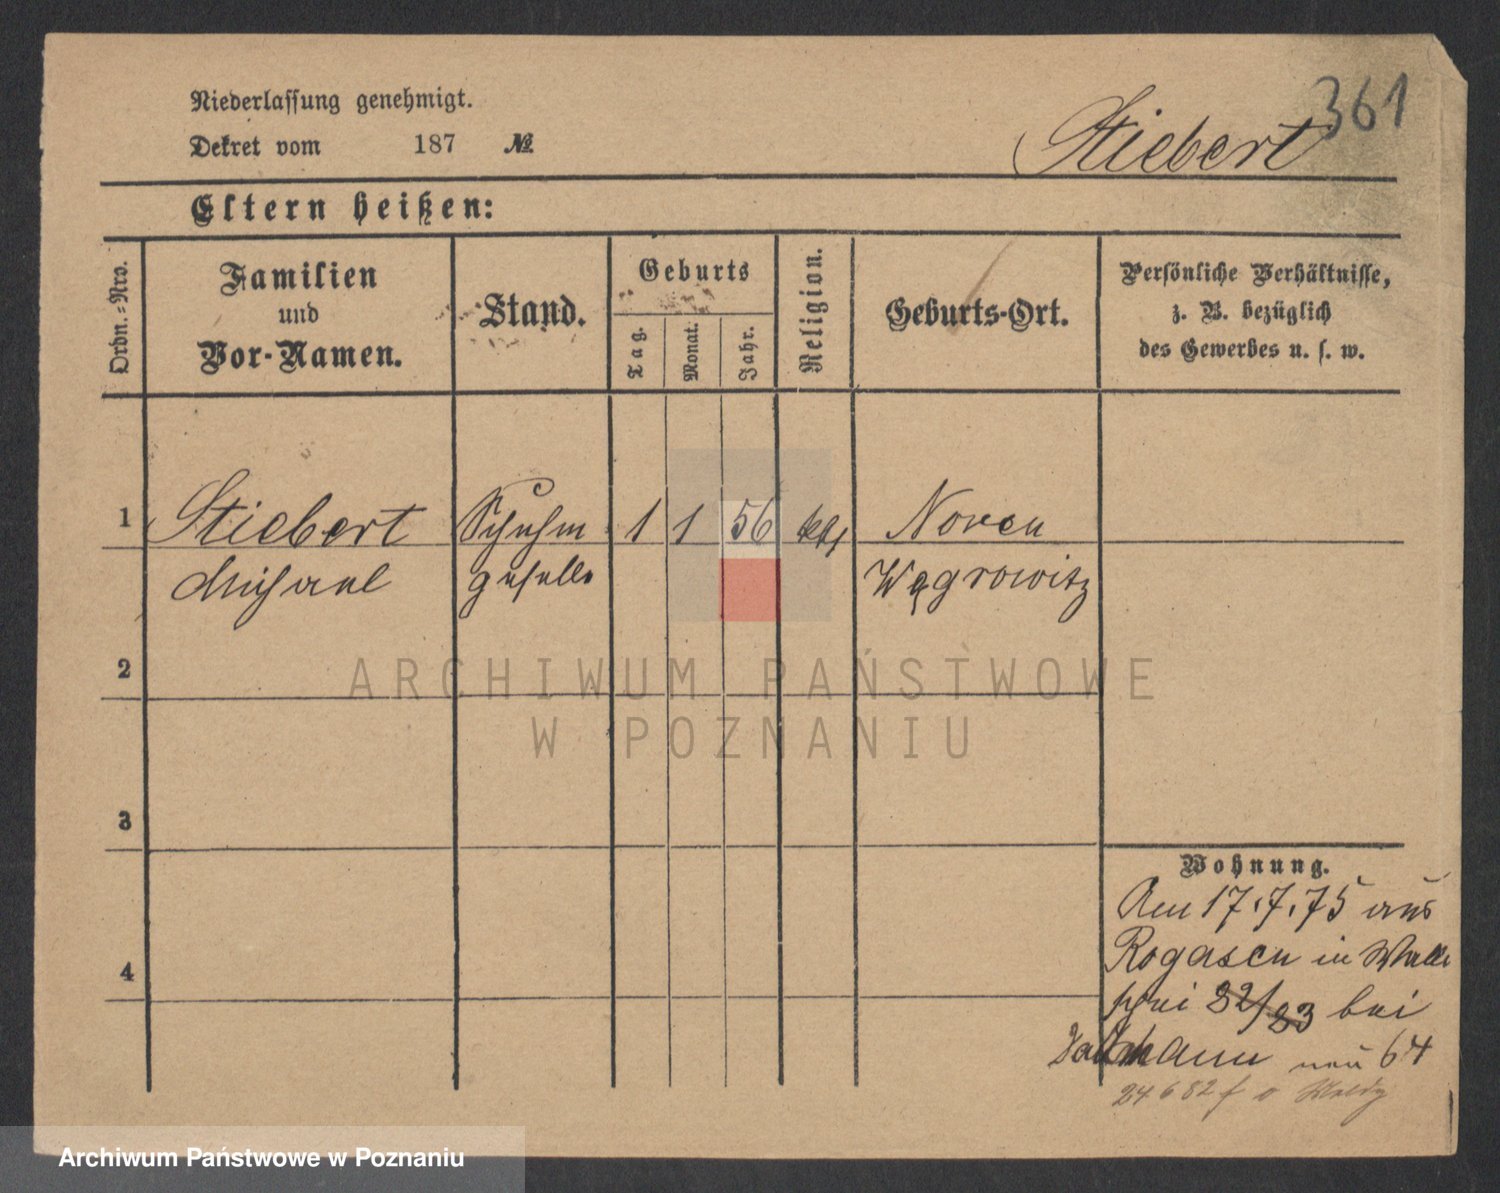 361
Niederlassung genehmigt.
Dekret vom 187 №
Stiebert
Eltern heißen:
Ordn.-Nro.
Familien
und
Vor-Namen.
Stand.
Geburts
Tag.
Monat.
Jahr.
Religion.
Geburts-Ort.
Persönliche Verhältnisse,
z. B. bezüglich
des Gewerbes u. s. w.
1 Stiebert Schuhm 1 1 56 kth Noven
Michael geselle Wągrowitz
2
3
4
Wohnung.
Am 17.7.75 aus
Rogasen in Walli
schei 82/83 bei
neu 64
24 6 82 f
ARCHIWUM PAŃSTWOWE
W POZNANIU
Archiwum Państwowe w Poznaniu